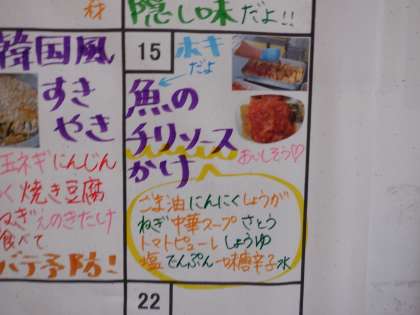 材
隠し味だよ!!
韓国風
すき
やき
玉ネギにんじん
く焼き豆腐
ねぎえのきたけ
食べて
バテ予防!
15
ホキ
だよ
魚の
チリソース
かけ
おいしそう♡
ごま油にんにくしょうが
ねぎ中華スープさとう
トマトピューレしょうゆ
塩でんぷん一味唐辛子水
22